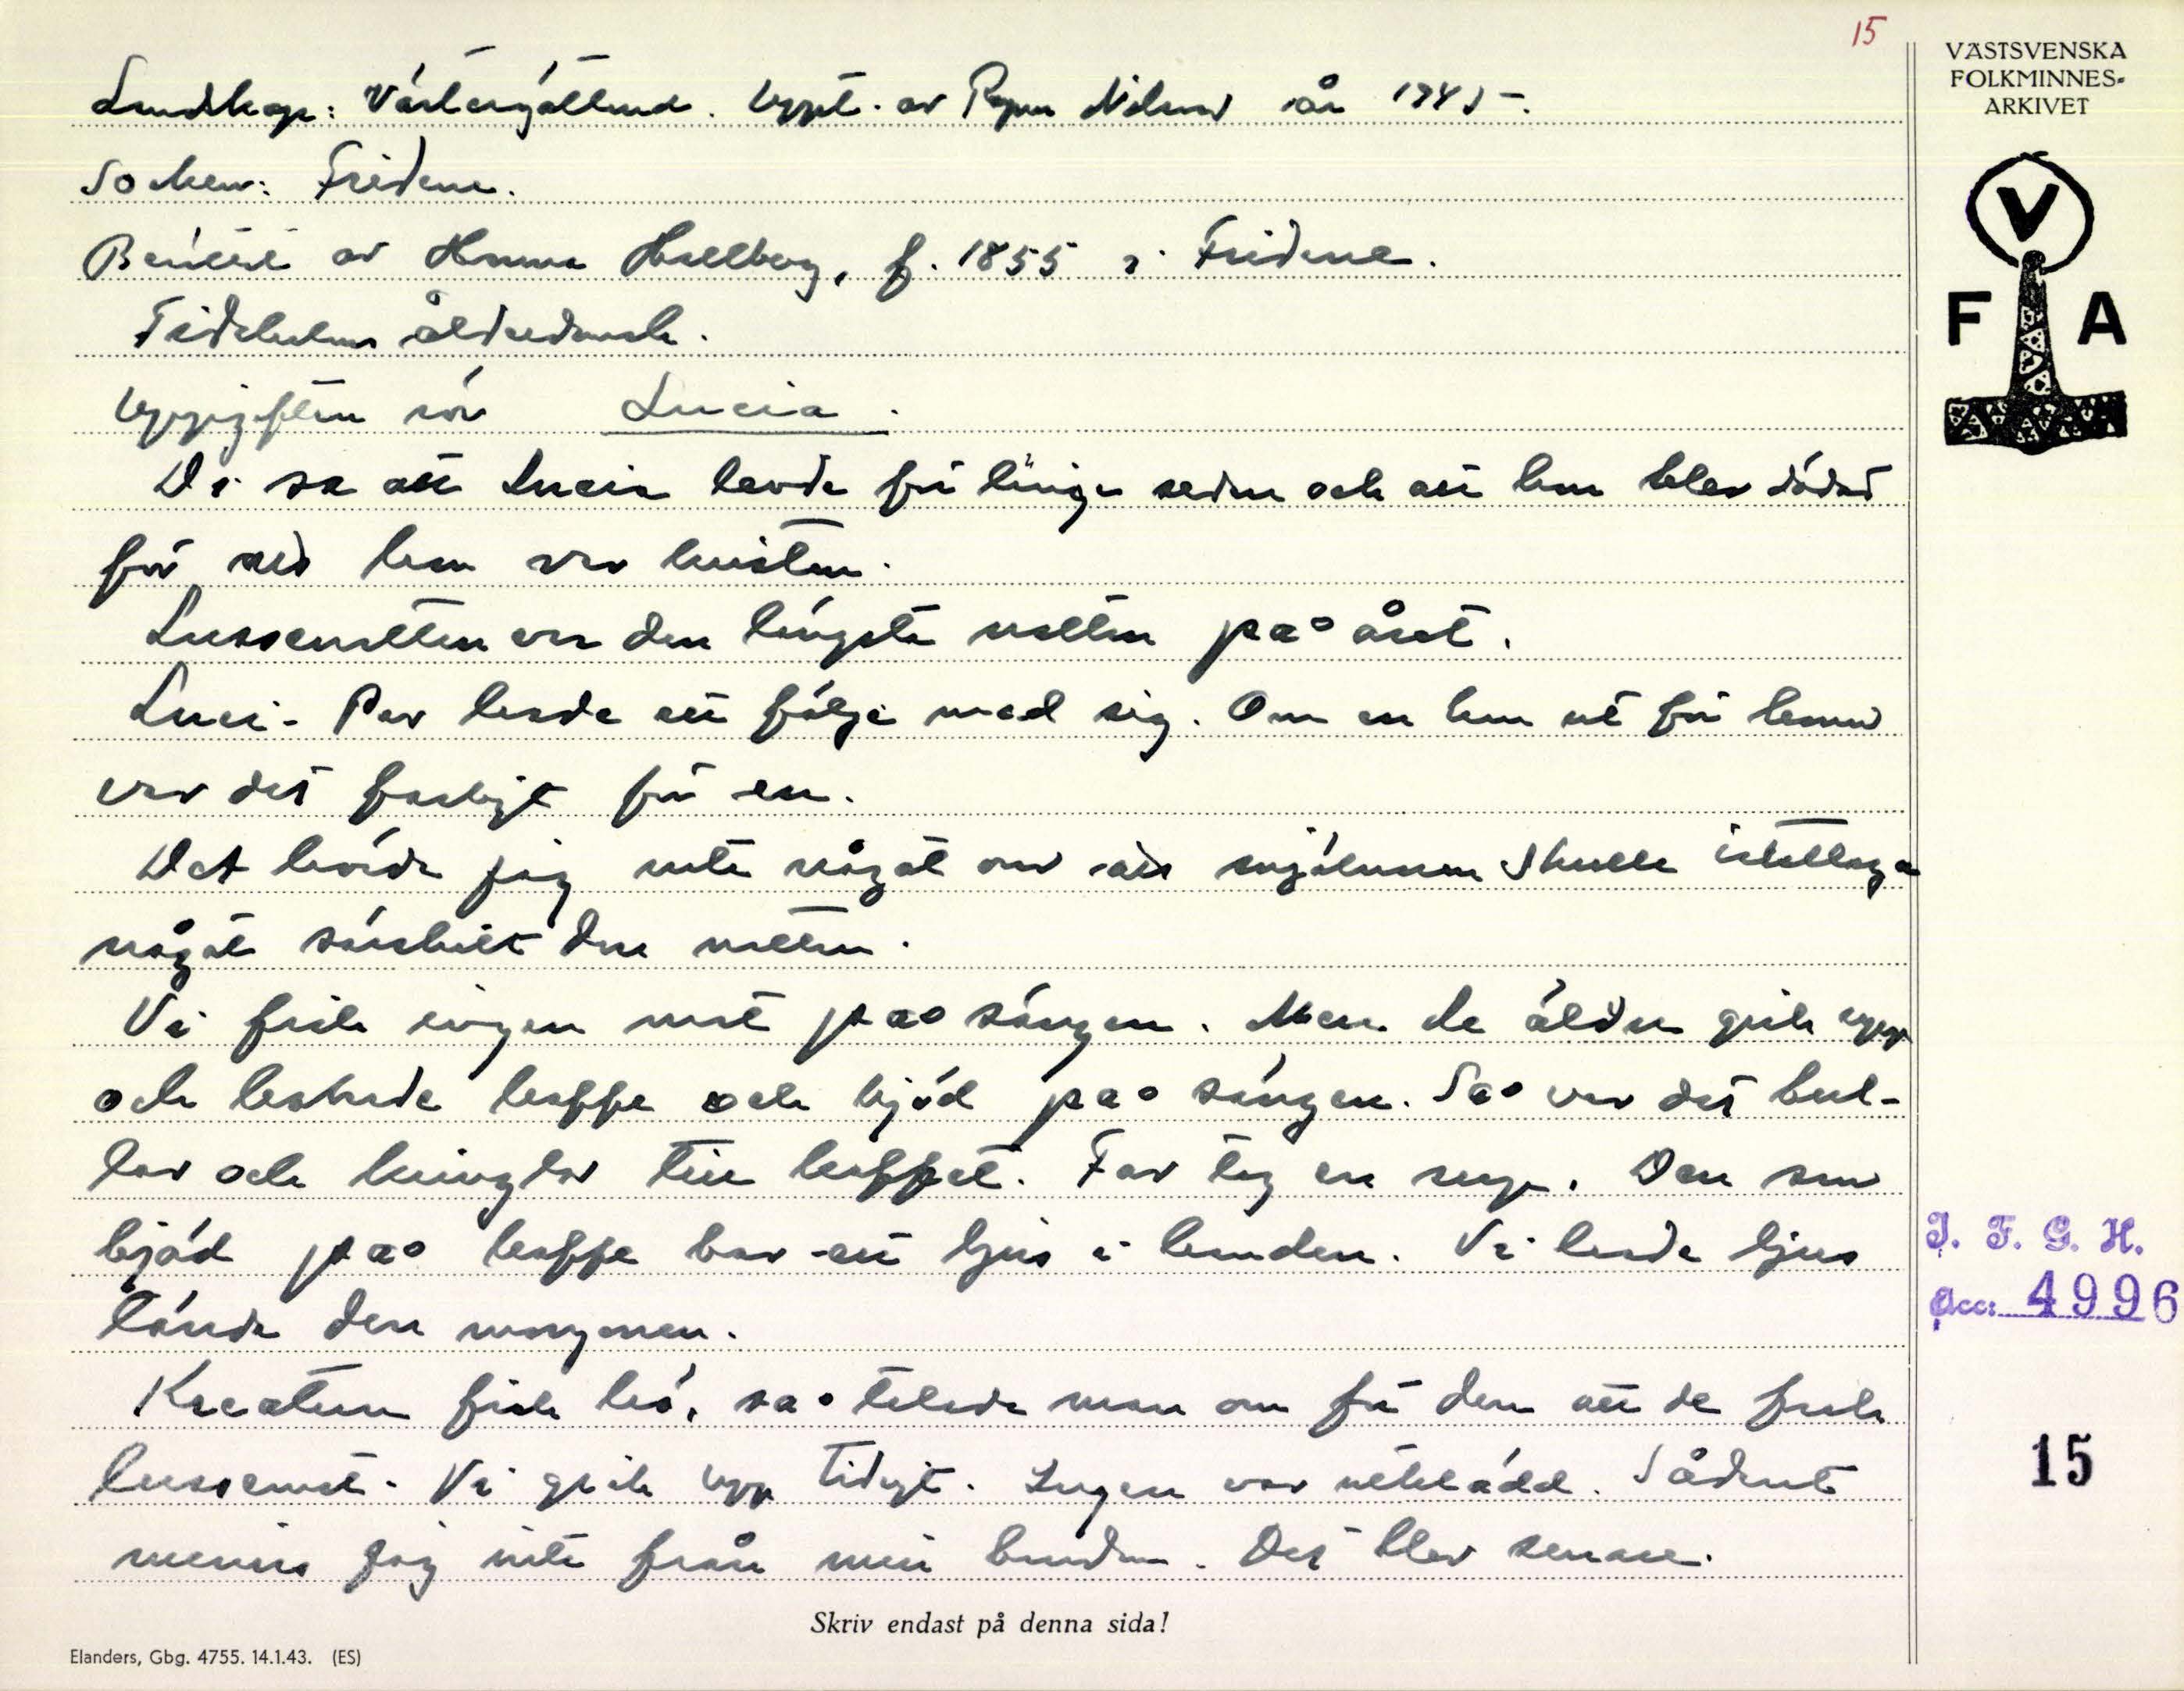 15
Landskap: Västergötland. Uppt. av Ragnar Nilsson år 1945.
Socken: Fridene.
Berättat av Hanna Hallberg, f. 1855 i Fridene.
Tidaholms ålderdomsh.
Uppgiften rör Lucia.
Di sa att Lucia levde för länge sedan och att hon blev dödad
för att hon var kristen.
Lussenatten var den längsta natten på året.
Luci-Par hade att följa med sig. Om en kom ut för honom
var det farligt för en.
Det hörde jag inte något om att mjölnaren skulle iakttaga
något särskilt den natten.
Vi fick ingen mat på sängen. Men de äldre gick upp
och kokade kaffe och bjöd på sängen. Så var det bul-
lar och kringlor till kaffet. Far tog en sup. Den som
bjöd på kaffe bar ett ljus i handen. Vi hade ljus
tända den morgonen.
Kreaturen fick hö, så talade man om för dem att de fick
lussemat. Vi gick upp tidigt. Ingen var utklädd. Sådant
minns jag inte från min barndom. Det blev senare.
Skriv endast på denna sida!
Elanders, Gbg. 4755. 14.1.43. (ES)
VÄSTSVENSKA
FOLKMINNES-
ARKIVET
V
F A
I. F. G. H.
Acc: 4996
15